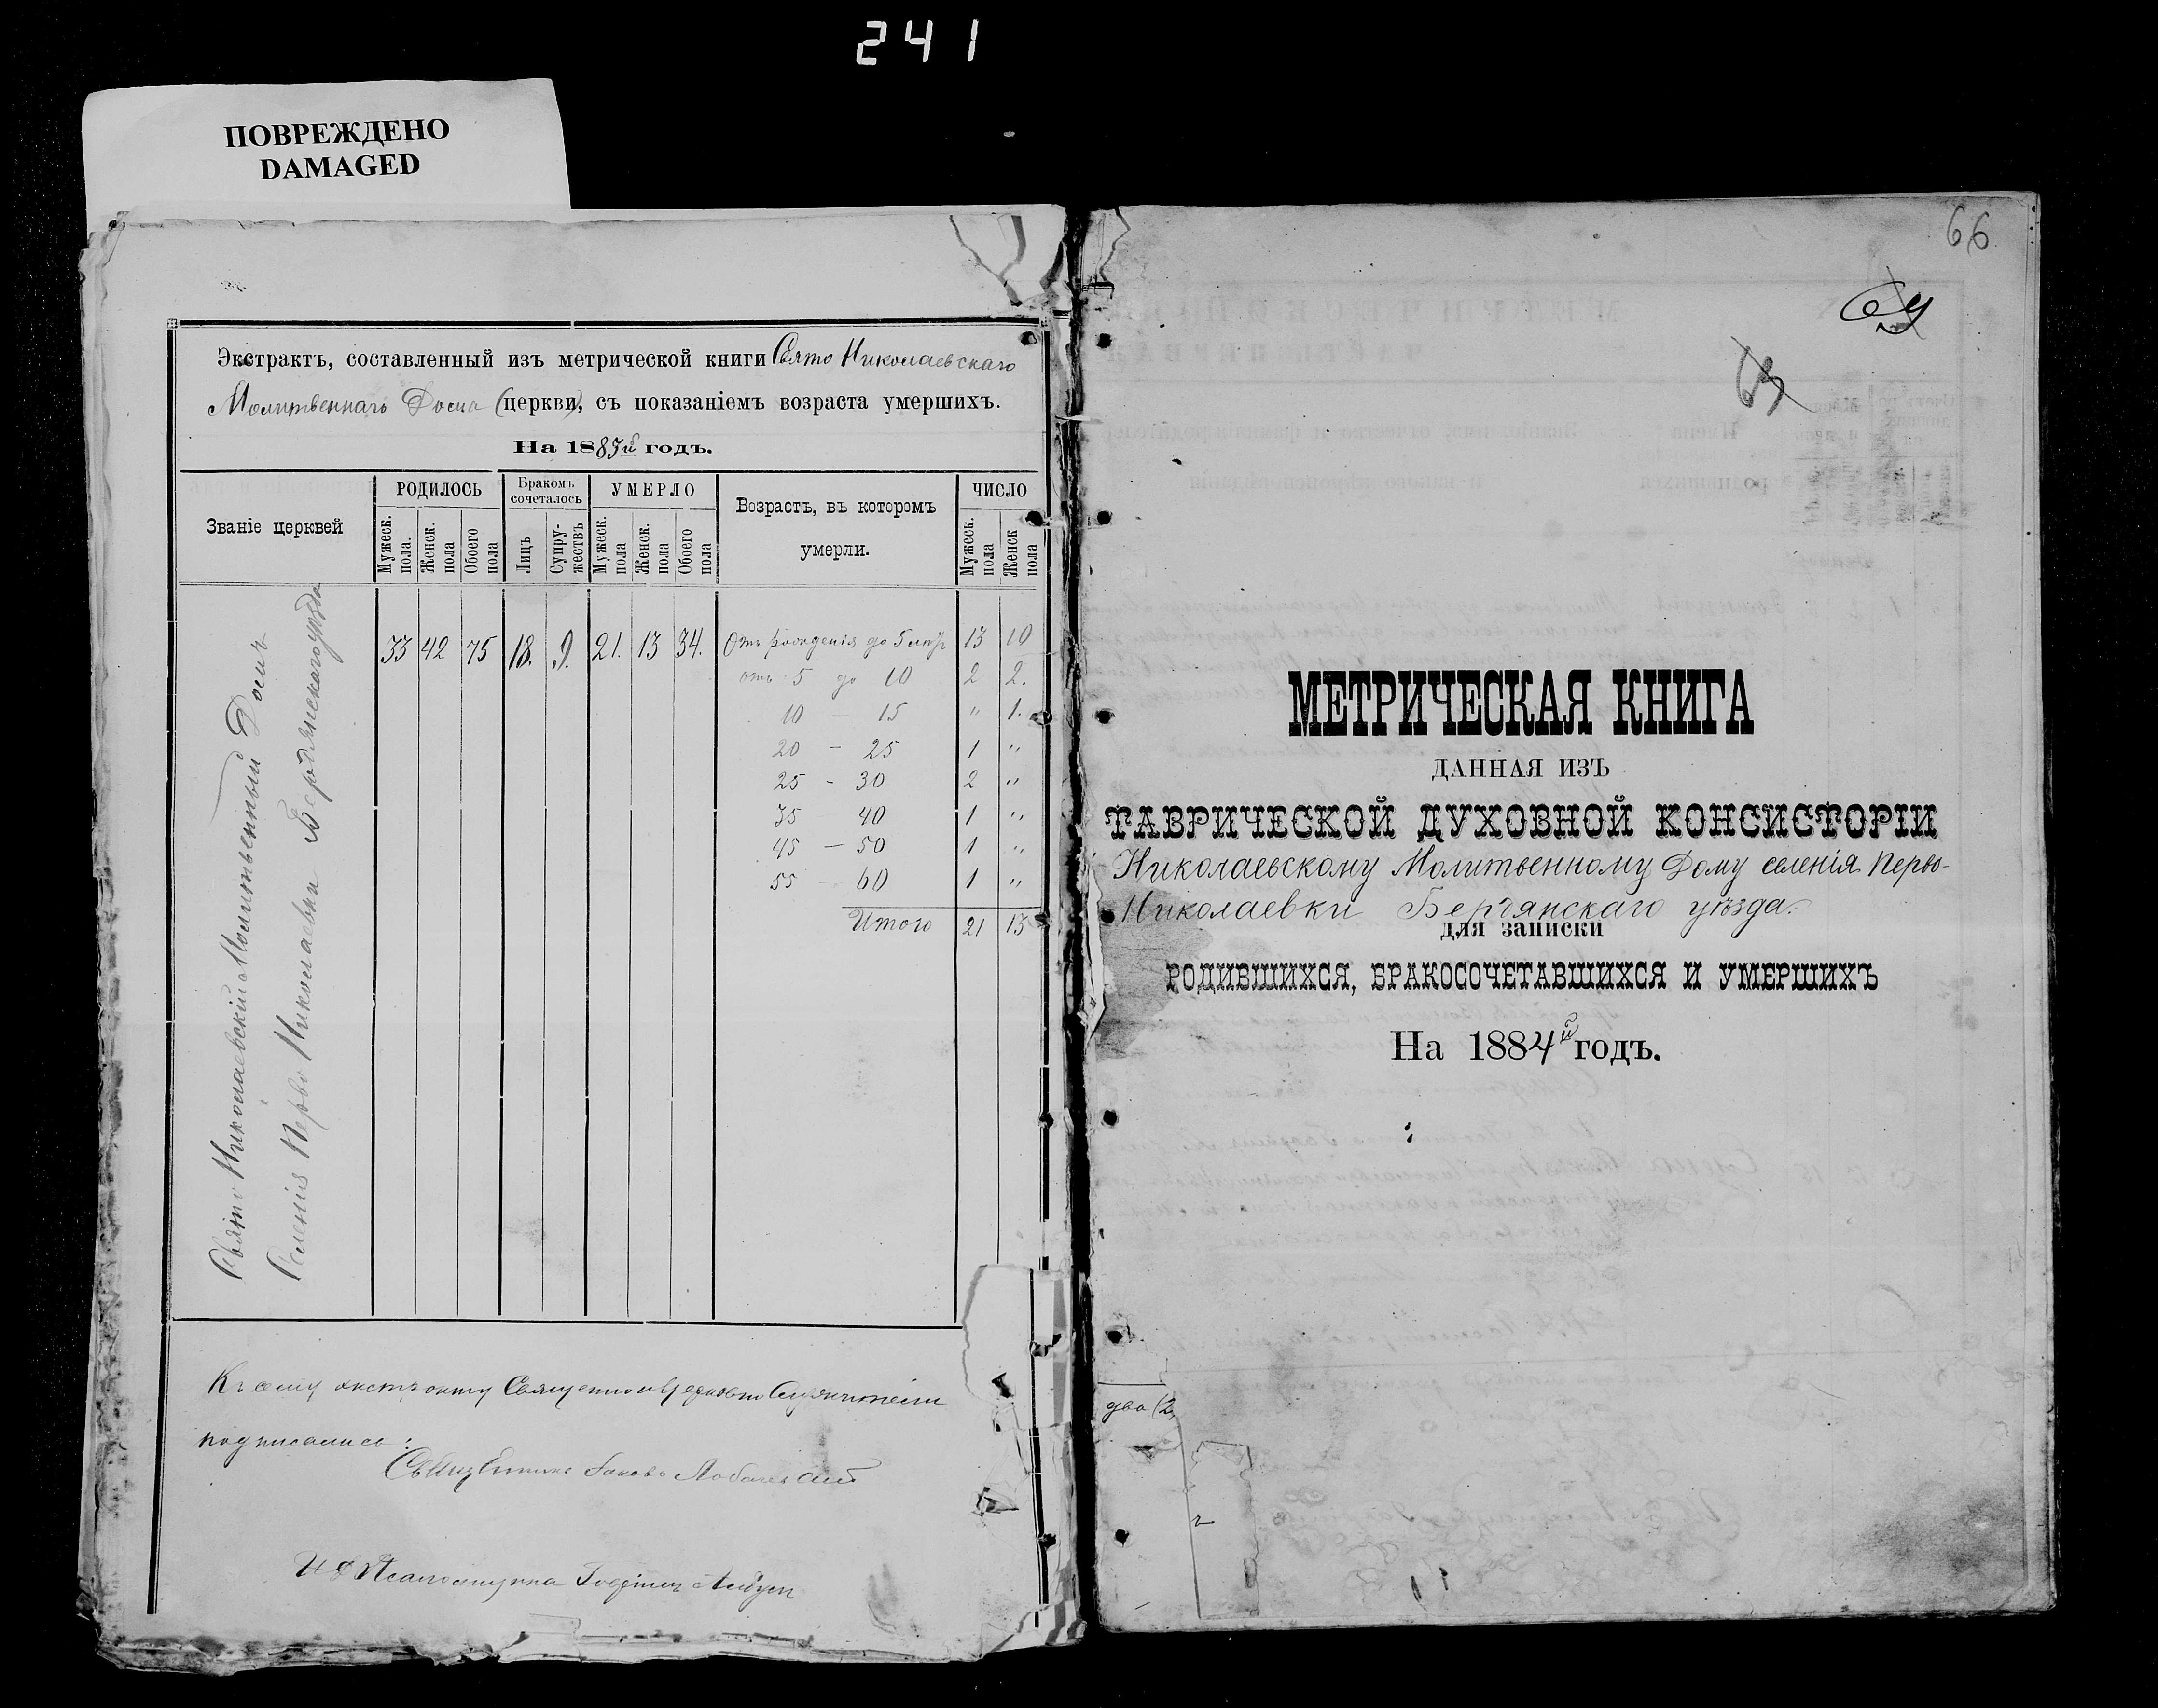 241
ПОВРЕЖДЕНО
DAMAGED
Экстрактъ, составленный изъ метрической книги Свято Николаевскаго
Молитвеннаго Дома (церкви), съ показаніемъ возраста умершихъ.
На 1883й годъ.
Званіе церквей
РОДИЛОСЬ
Мужеск. пола.
Женск. пола
Обоего пола
Бракомъ сочеталось
Лицъ
Супружествъ
УМЕРЛО
Мужеск. пола
Женск. пола
Обоего пола
Возрастъ, въ которомъ
умерли.
ЧИСЛО
Мужеск. пола
Женск пола
Свято Николаевскій Молитвенный Домъ
Селенія Перво Николаевки Бердянскаго уѣзда
33 42 75 18. 9. 21. 13 34. Отъ рожденія до 5 лѣтъ 13 10
отъ 5 до 10 2 2.
10 — 15 " 1.
20 - 25 1 "
25 - 30 2 "
35 40 1 "
45 — 50 1 "
55 - 60 1 "
Итого 21 13
Къ сему экстракту Священно и Церковно Служители
подписались:
Священникъ Іаковъ
И Д Псаломщика
66
69
63
МЕТРИЧЕСКАЯ КНИГА
ДАННАЯ ИЗЪ
ТАВРИЧЕСКОЙ ДУХОВНОЙ КОНСИСТОРІИ
Николаевскому Молитвенному Дому селенія Перво-
Николаевки Бердянскаго уѣзда.
для записки
РОДИВШИХСЯ, БРАКОСОЧЕТАВШИХСЯ И УМЕРШИХЪ
На 1884й годъ.
два (2